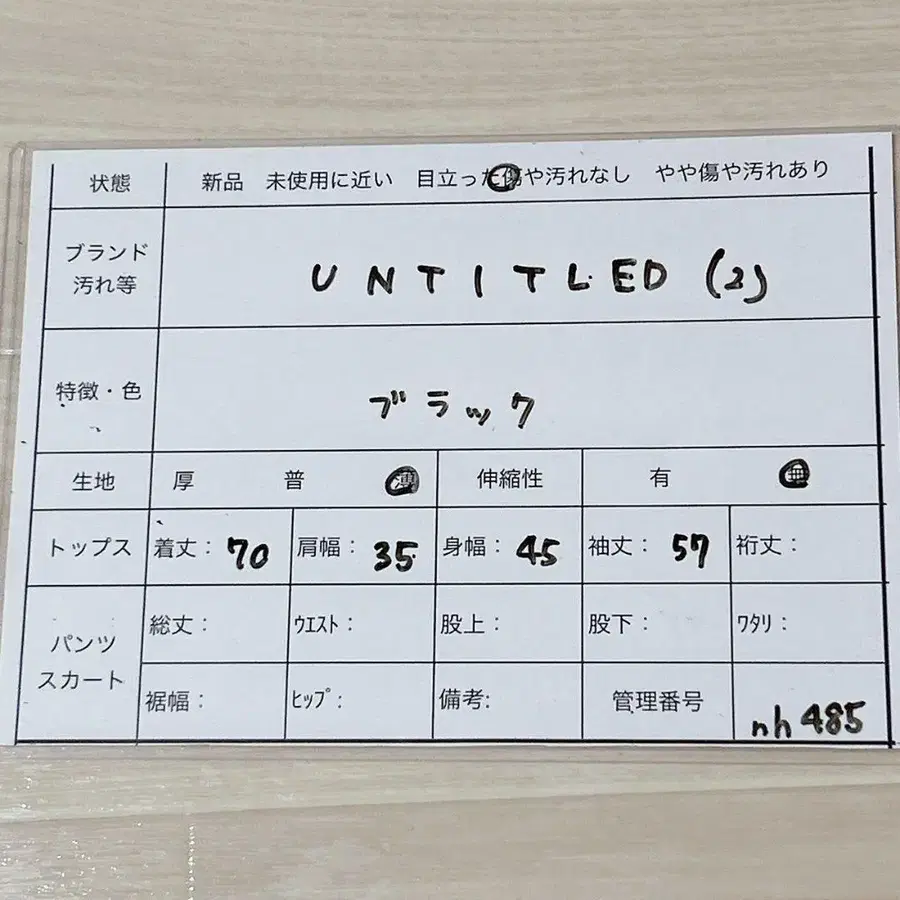 状態 新品 未使用に近い 目立った傷や汚れなし やや傷や汚れあり
ブランド
汚れ等
UNTITLED (2)
特徴・色 ブラック
生地 厚 普 薄 伸縮性 有 無
トップス 着丈: 70 肩幅: 35 身幅: 45 袖丈: 57 裄丈:
パンツ
スカート
総丈: ウエスト: 股上: 股下: ワタリ:
裾幅: ヒップ: 備考: 管理番号 nh485